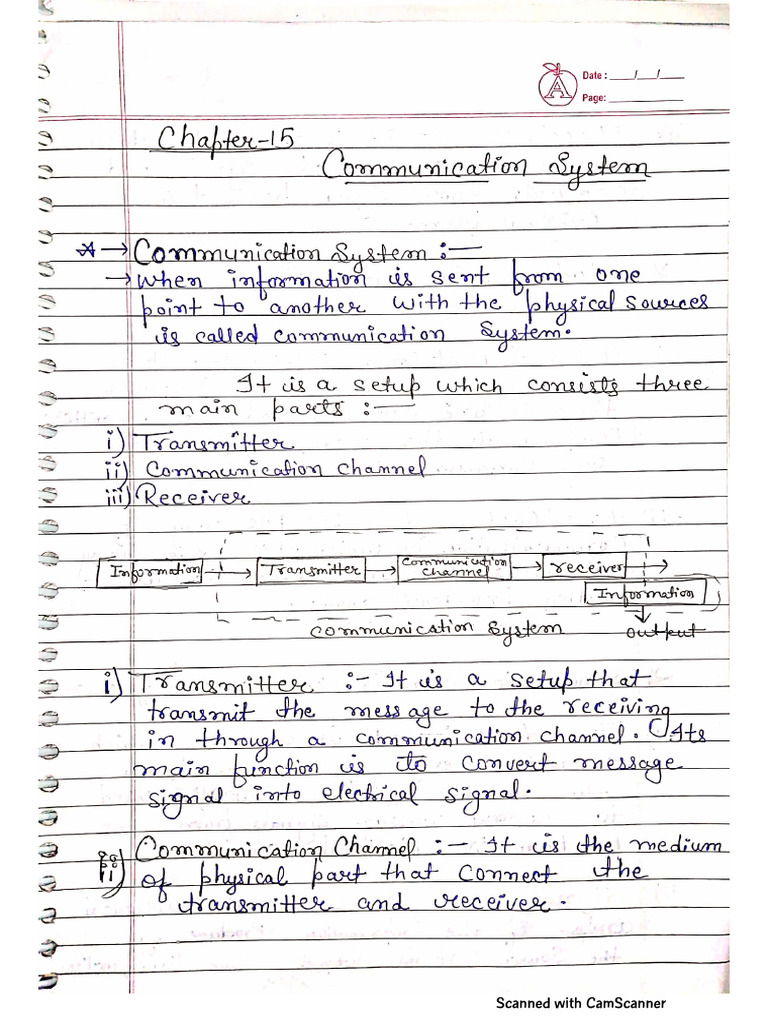 Date : ___/___/____
Page: ____________
Chapter-15
Communication System
A → Communication System :—
→ When information is sent from one
point to another with the physical sources
is called communication System.
It is a setup which consists three
main parts :—
i) Transmitter
ii) Communication Channel
iii) Receiver
Information → Transmitter → Communication Channel → receiver →
Information
Communication System output
i) Transmitter :- It is a setup that
transmit the message to the receiving
in through a communication channel. Its
main function is to convert message
signal into electrical signal.
ii) Communication Channel :- It is the medium
of physical part that connect the
transmitter and receiver.
Scanned with CamScanner